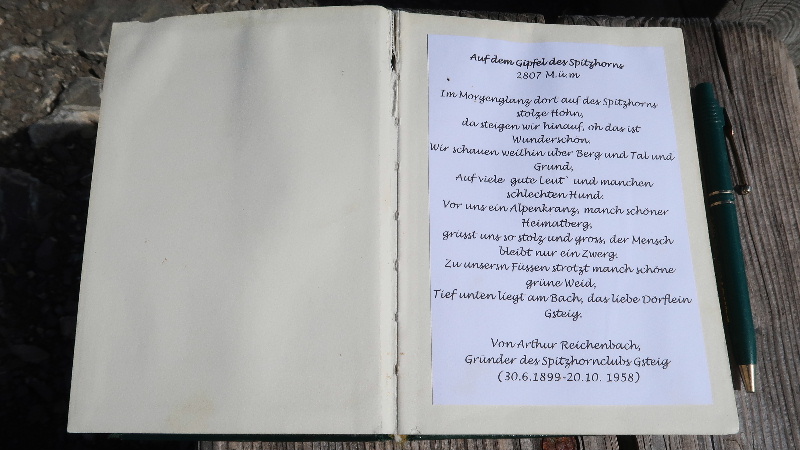 Auf dem Gipfel des Spitzhorns
2807 M.ü.m
Im Morgenglanz dort auf des Spitzhorns
stolze Höhn,
da steigen wir hinauf, oh das ist
Wunderschön.
Wir schauen weithin über Berg und Tal und
Grund,
Auf viele gute Leut` und manchen
schlechten Hund.
Vor uns ein Alpenkranz, manch schöner
Heimatberg,
grüsst uns so stolz und gross, der Mensch
bleibt nur ein Zwerg.
Zu unsersn Füssen strotzt manch schöne
grüne Weid,
Tief unten liegt am Bach, das liebe Dörflein
Gsteig.
Von Arthur Reichenbach,
Gründer des Spitzhornclubs Gsteig
(30.6.1899-20.10. 1958)